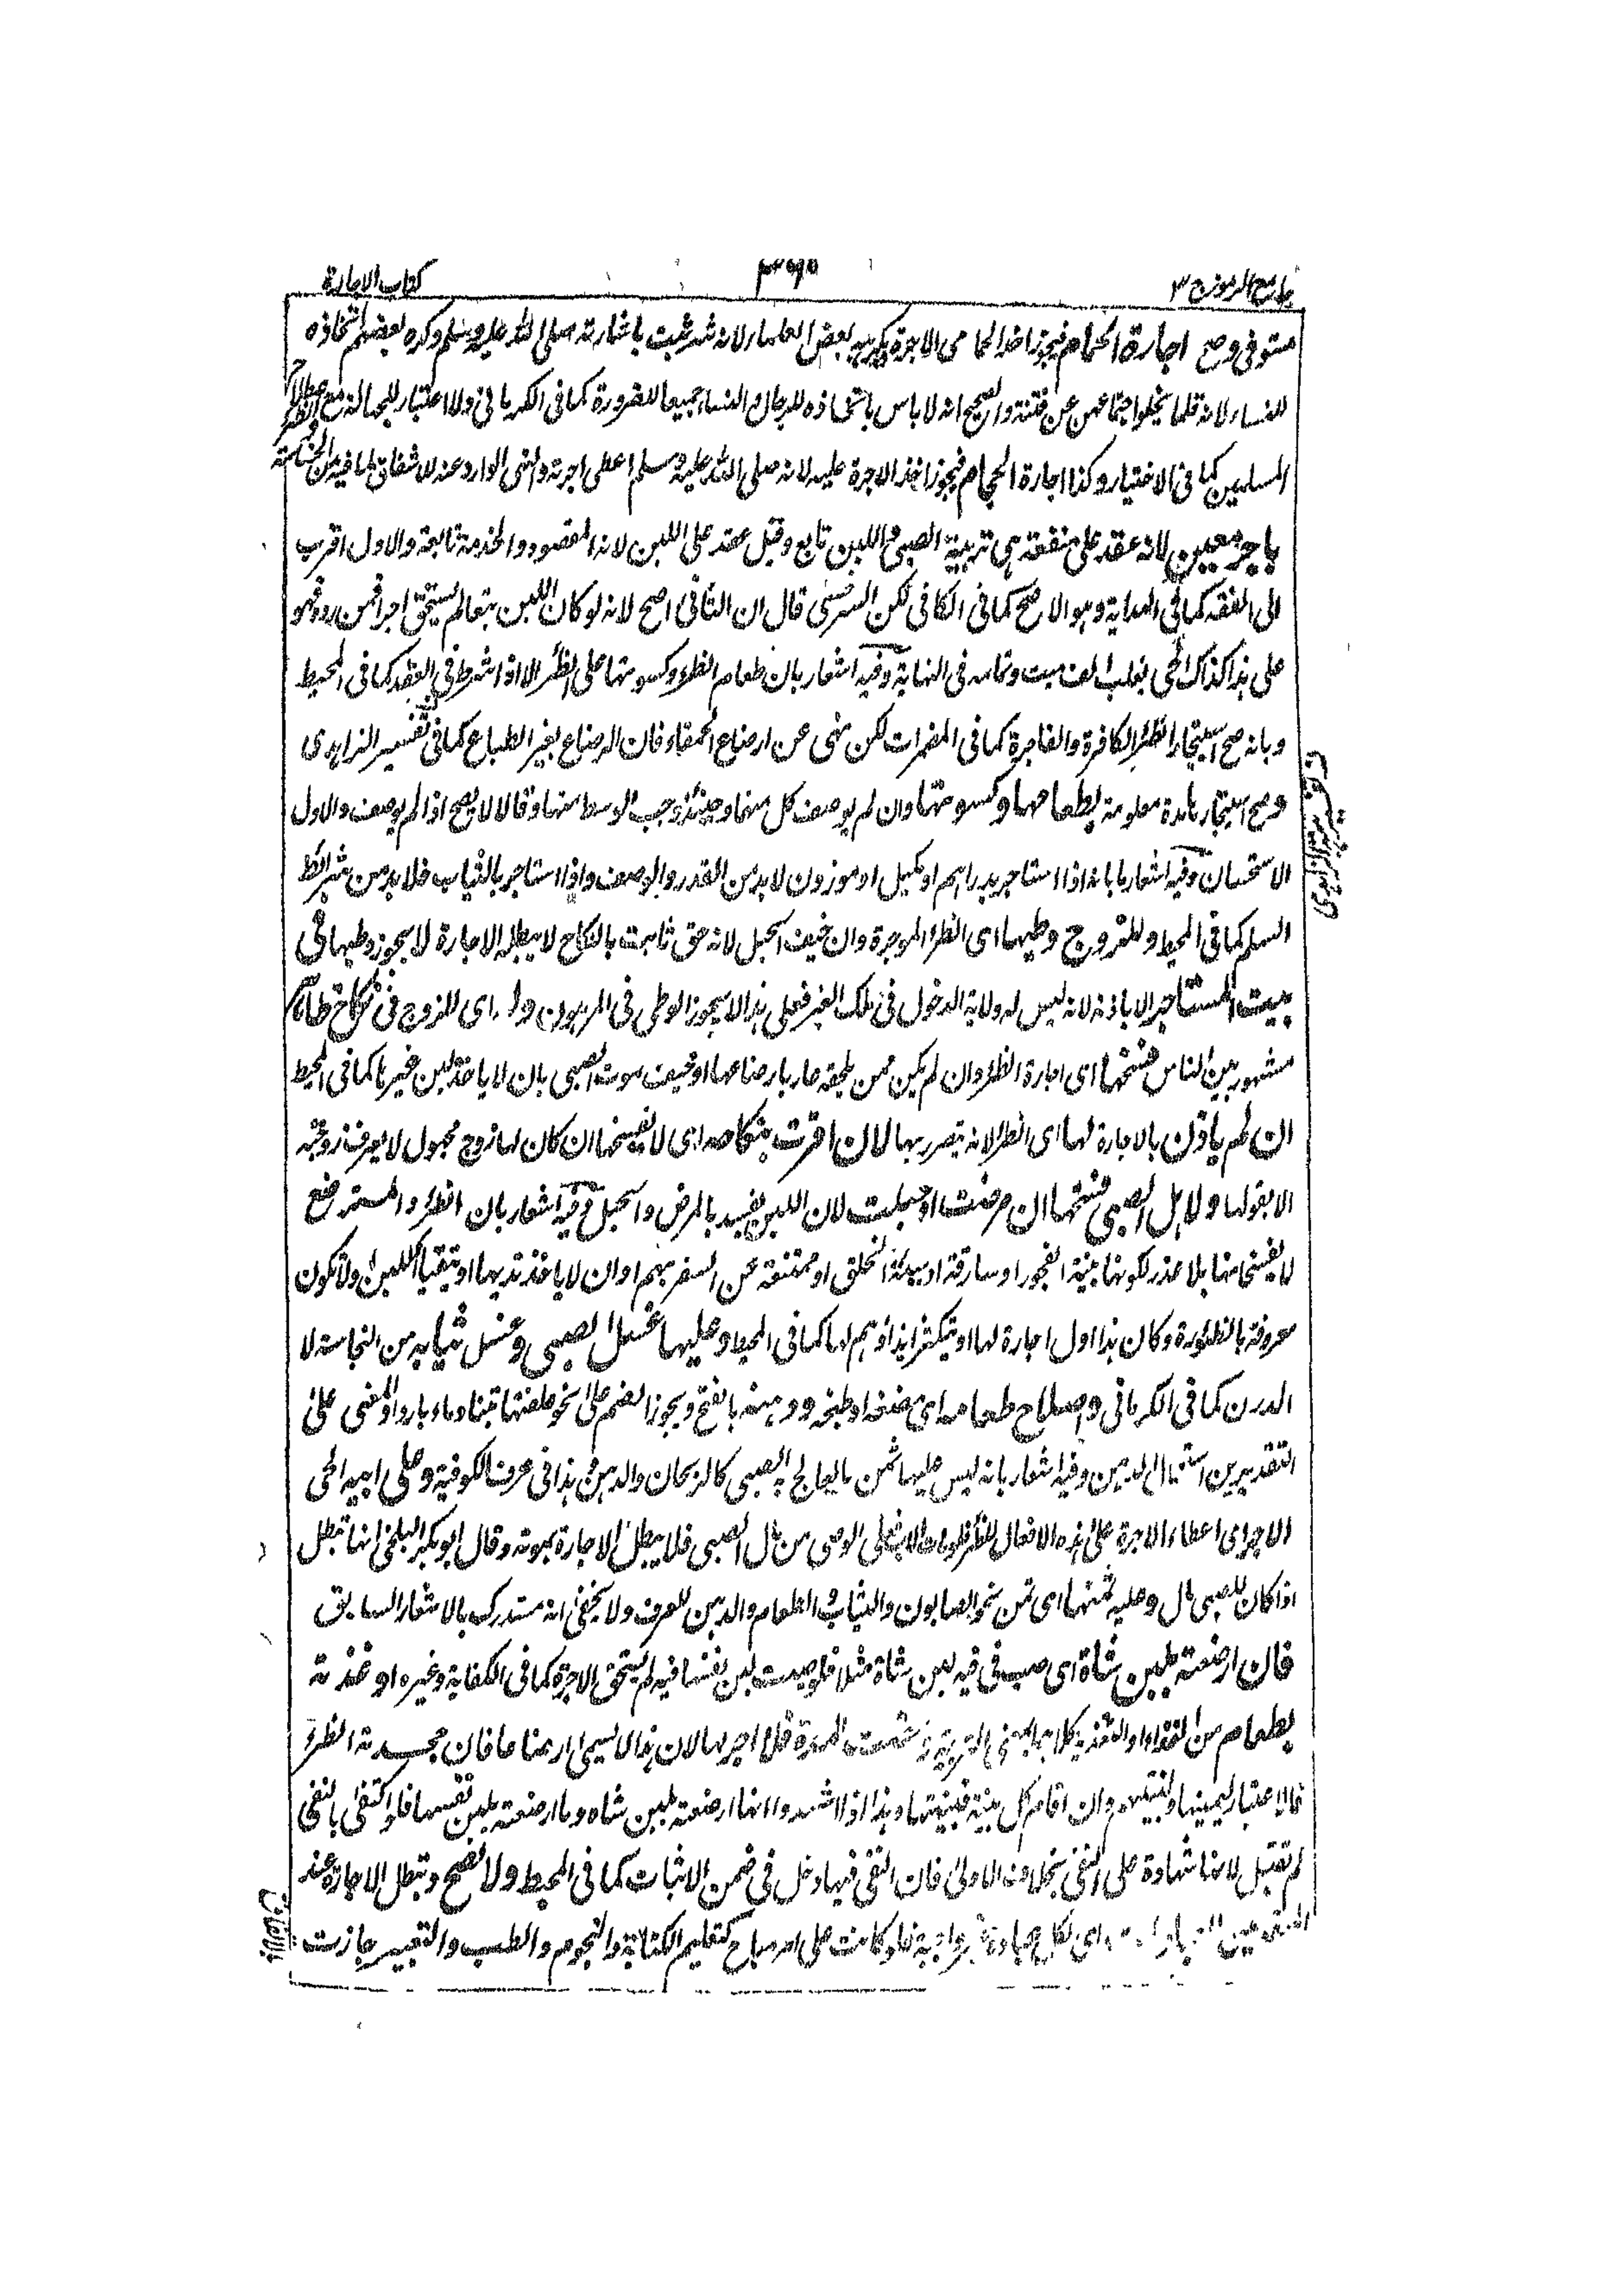 جامع الرموز ج ٣
كتاب الاجارة
مستوفى وصح اجارة الحمام فيجوز اخذ الحمامى الاجرة بعض العلماء لانه صلى الله عليه وسلم وكره بعضهم اتخاذه
للنساء لانه قلما يخلو اجتماعهن عن فتنة والصحيح انه لا باس باتخاذه للرجال والنساء جميعا للضرورة كما فى الكرمانى ولا اعتبار للجهالة مع
المسلمين كما فى الاختيار وكذا اجارة الحجام فيجوز اخذ الاجرة عليه لانه صلى الله عليه وسلم اعطى اجرته والنهى الوارد عنه للاشفاق لما فيه من الخساسة
باجر معين لانه عقد على منفعة هى تربية الصبى واللبن تابع وقيل عقد على اللبن لانه المقصود والخدمة تابعة والاول اقرب
الى الفقه كما فى الهداية وهو الاصح كما فى الكافى لكن السرخسى قال ان الثانى اصح لانه لو كان اللبن تبعا لم يستحق اجرا فمن ردوه فهو
على هذا كذاك الحى يغلب الف ميت وتمامه فى النهاية وفيه اشعار بان طعام الظئر وكسوتها على الظئر الا اذا اشرط فى العقد كما فى المحيط
وبانه صح استيجار الظئر الكافرة والفاجرة كما فى المضمرات لكن نهى عن ارضاع الحمقاء فان الرضاع يغير الطباع كما فى تفسير الزاهدى
وصح استيجارها مدة معلومة بطعامها وكسوتها وان لم يوصف كل منهما وحينئذ وجب الوسط منها وقالا لا يصح اذا لم يوصف والاول
الاستحسان وفيه اشعار بانه اذا استاجر بدراهم او مكيل او موزون لا بد من القدر والوصف واذا استاجر بالثياب فلا بد من شرائط
السلم كما فى المحيط وللزوج وطيها اى الظئر الموجرة وان خيف الحبل لانه حق ثابت بالنكاح لا يبطله الاجارة لا يجوز وطيها فى
بيت المستاجر الا باذنه لانه ليس له ولاية الدخول فى ملك الغير فعلى هذا لا يجوز الوطى فى المرهون وله اى للزوج فى نكاح ظاهر
مشهور بين الناس فسخها اى اجارة الظئر وان لم يكن ممن يلحقه عار بارضاعها او خيف موت الصبى بان لا ياخذ لبن غيرها كما فى المحيط
ان لم ياذن بالاجارة لها اى الظئر لانه يتضرر بها لا ان اقرت بنكاحه اى لا يفسخها ان كان لها زوج مجهول لا يعرف زوجته
الا بقولها ولاهل الصبى فسخها ان مرضت او حبلت لان اللبن يفسد بالمرض والحبل وفيه اشعار بان الظئر والمسترضع
لا يفسخانها بلا عذر لكونها بينة الفجور او سارقة او سيئة الخلق او ممتنعة عن السفر بهم او ان لا ياخذ ثديها او يتقيأ اللبن ولا تكون
معروفة بالظئورة وكان هذا اول اجارة لها او يكثر ايذاؤهم لها كما فى المحيط وعليها غسل الصبى وغسل ثيابه من النجاسة لا
الدرن كما فى الكرمانى واصلاح طعامه اى مضغه او طبخه ودهنه بالفتح ويجوز الضم على نحو علفتها تبنا وماء باردا والمعنى على
التقديرين استعمال الدهن وفيه اشعار بانه ليس عليها ثمن ما يعالج به الصبى كالريحان والدهن هذا فى عرف الكوفية وعلى ابيه الحى
الاجر اى اعطاء الاجرة على هذه الافعال للظئر فلو مات الاب فعلى الوصى من مال الصبى فلا يبطل الاجارة بموته وقال ابو بكر البلخى انها تبطل
اذا كان للصبى مال وعليه ثمنها اى ثمن نحو الصابون والثياب والطعام والدهن للعرف ولا يخفى انه مستدرك بالاشعار السابق
فان ارضعته بلبن شاة اى صب فى فيه لبن شاة مثلا فلو صبت لبن نفسها فيه لم يستحق الاجرة كما فى الكفاية وغيره او غذته
بطعام من الغذاء او التغذية كلاهما بمعنى التربية المدة فلا اجر لها لان هذا لا يسمى ارضاعا فان جحدته الظئر
فالاعتبار ليمينها وان اقام كل بينة فبينتها وهذا اذا شهدوا انها ارضعته بلبن شاه وما ارضعته بلبن نفسها فلو اكتفى بالنفى
لم تقبل لانها شهادة على النفى بخلاف الاولى فان النفى فيها دخل فى ضمن الاثبات كما فى المحيط ولا تصح وتبطل الاجارة عند
اى لكل عبادة واجبة فلو كانت على امر مباح كتعليم الكتابة والنجوم والطب والتعبير جازت